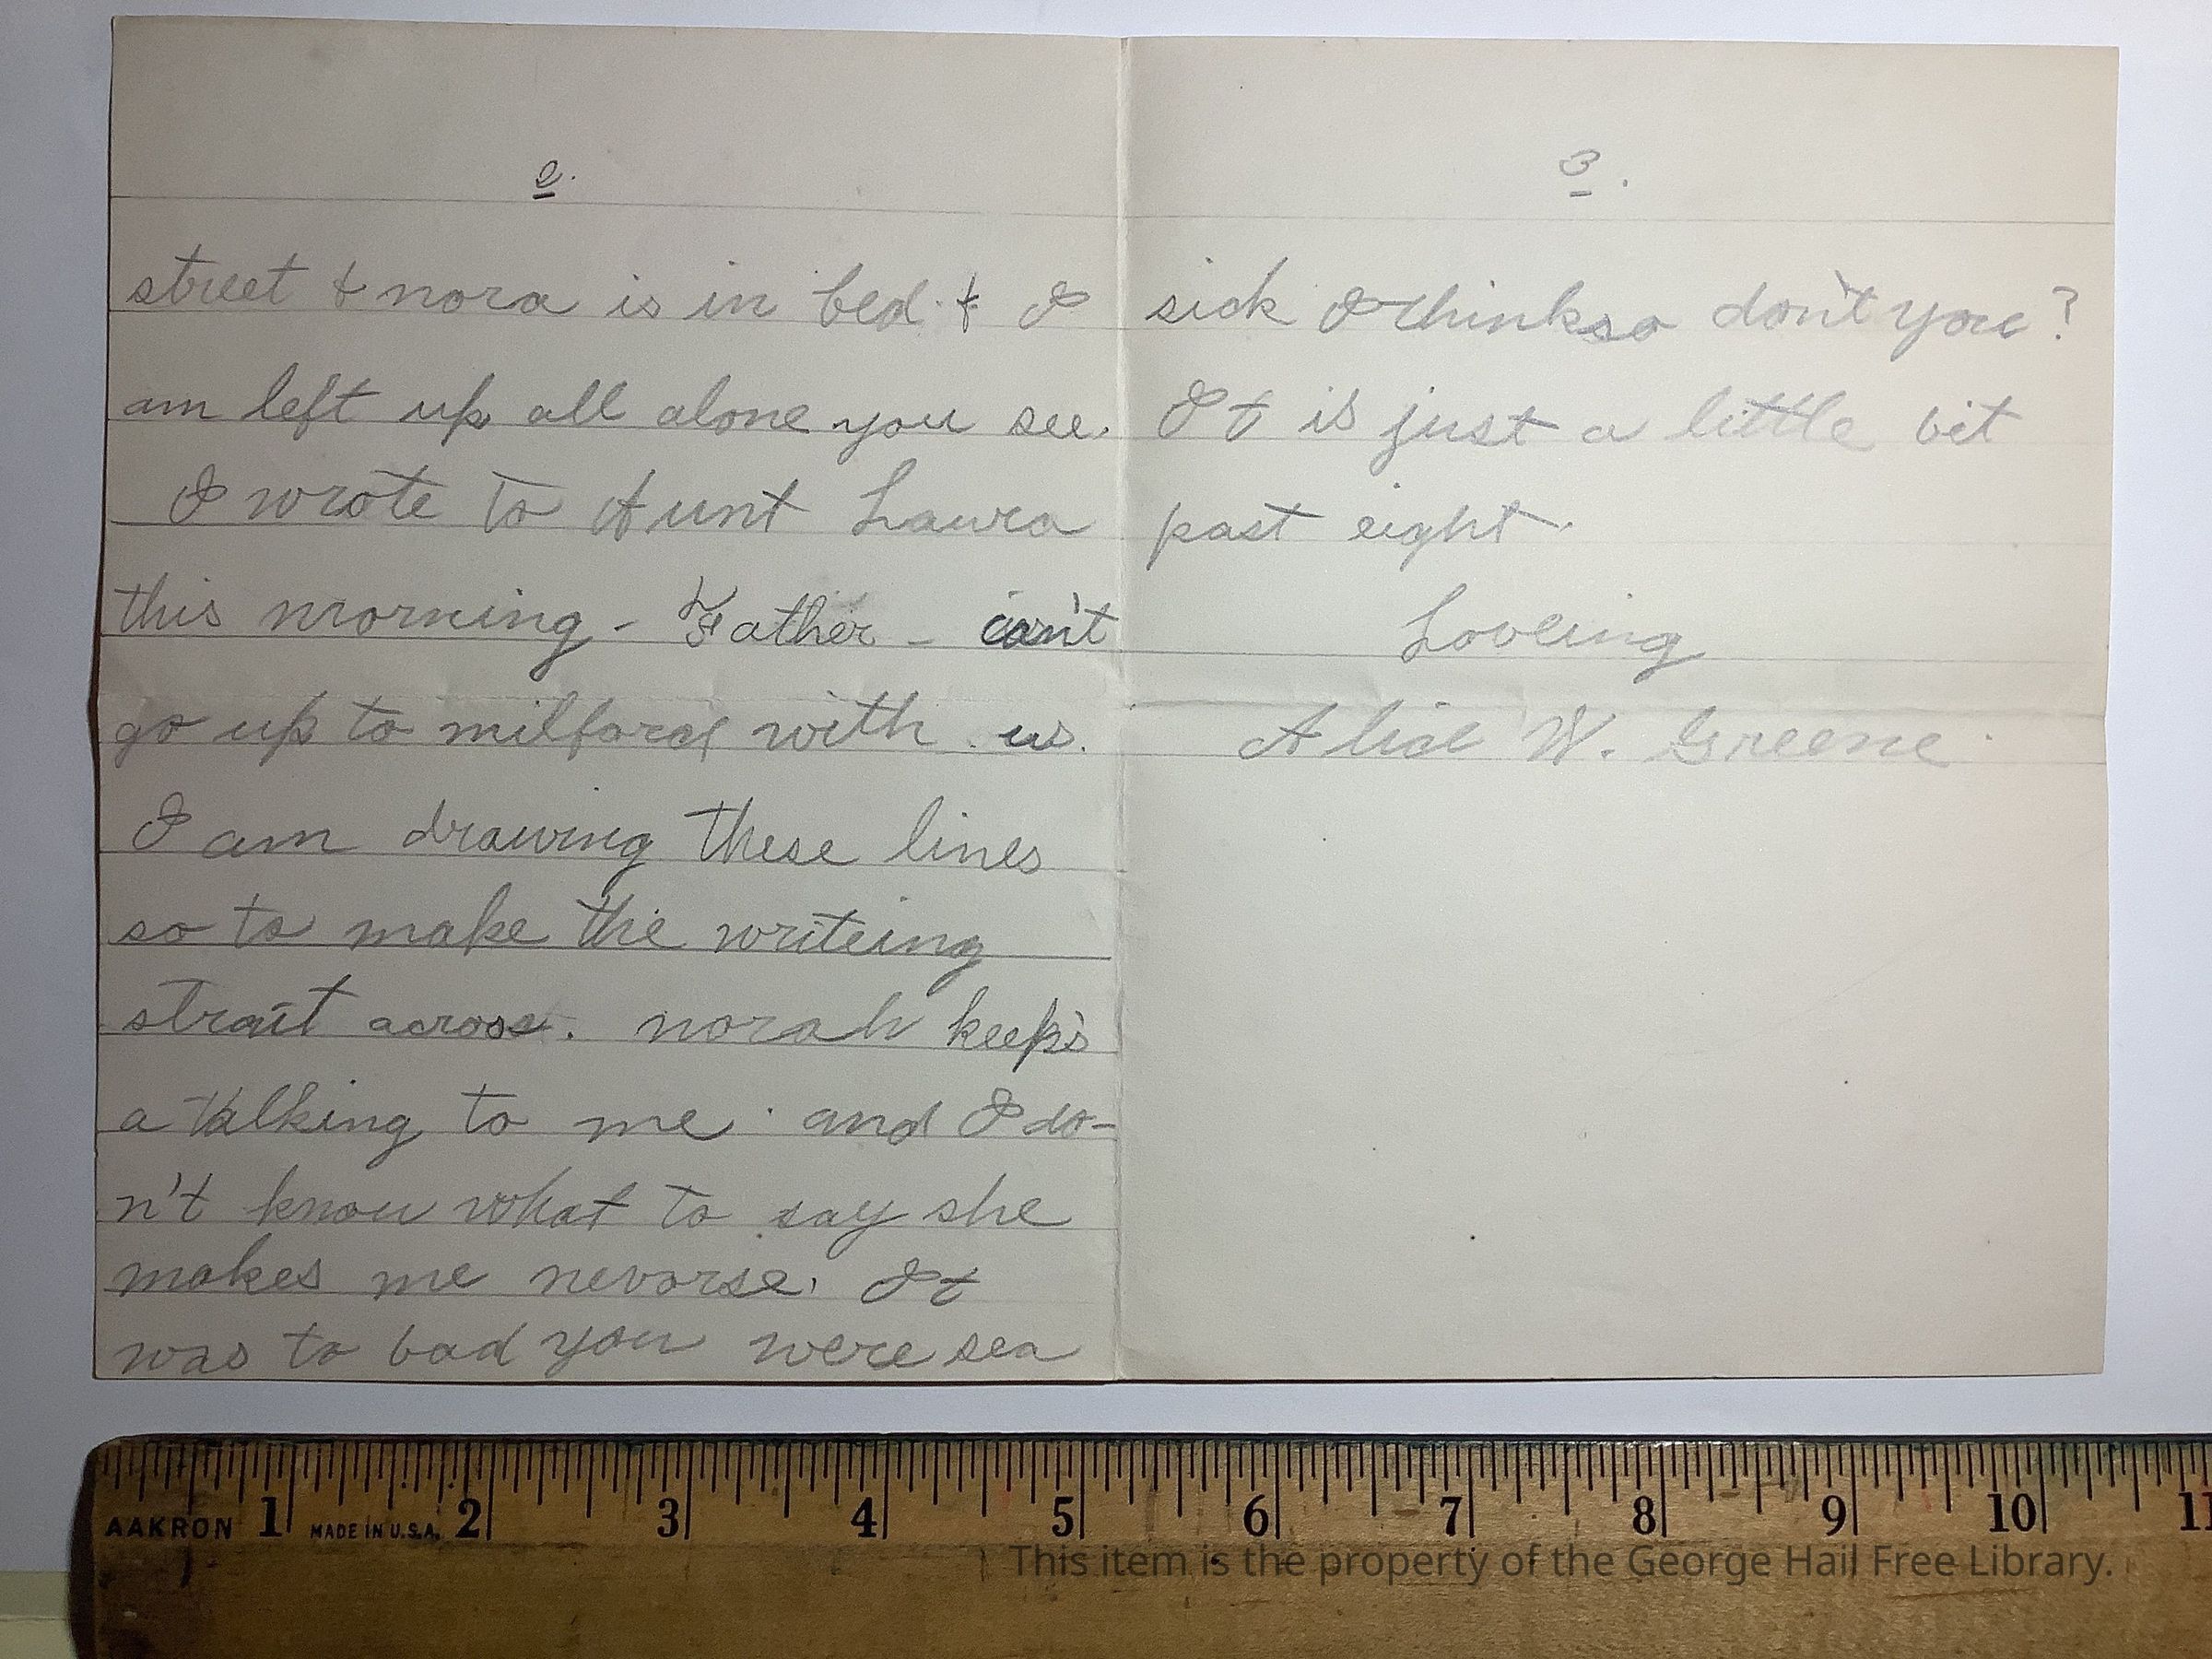 2.
street & nora is in bed. & I
am left up all alone you see.
I wrote to Aunt Laura
this morning - Father - can't
go up to milford with us.
I am drawing these lines
so to make the writeing
strait across. norah keep's
a talking to me and I do-
n't know what to say she
makes me nevorse. It
was to bad you were sea
3.
sick I think so don't you?
It is just a little bit
past eight.
Loveing
Alice W. Greene.
AAKRON 1 MADE IN U.S.A. 2 3 4 5 6 7 8 9 10 11
This item is the property of the George Hail Free Library.